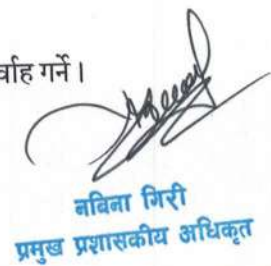 र्वाह गर्ने ।
नबिना गिरी
प्रमुख प्रशासकीय अधिकृत